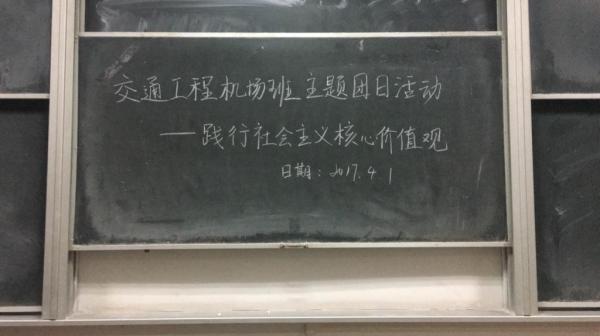 交通工程机场班主题团日活动
——践行社会主义核心价值观
日期：2017.4.1